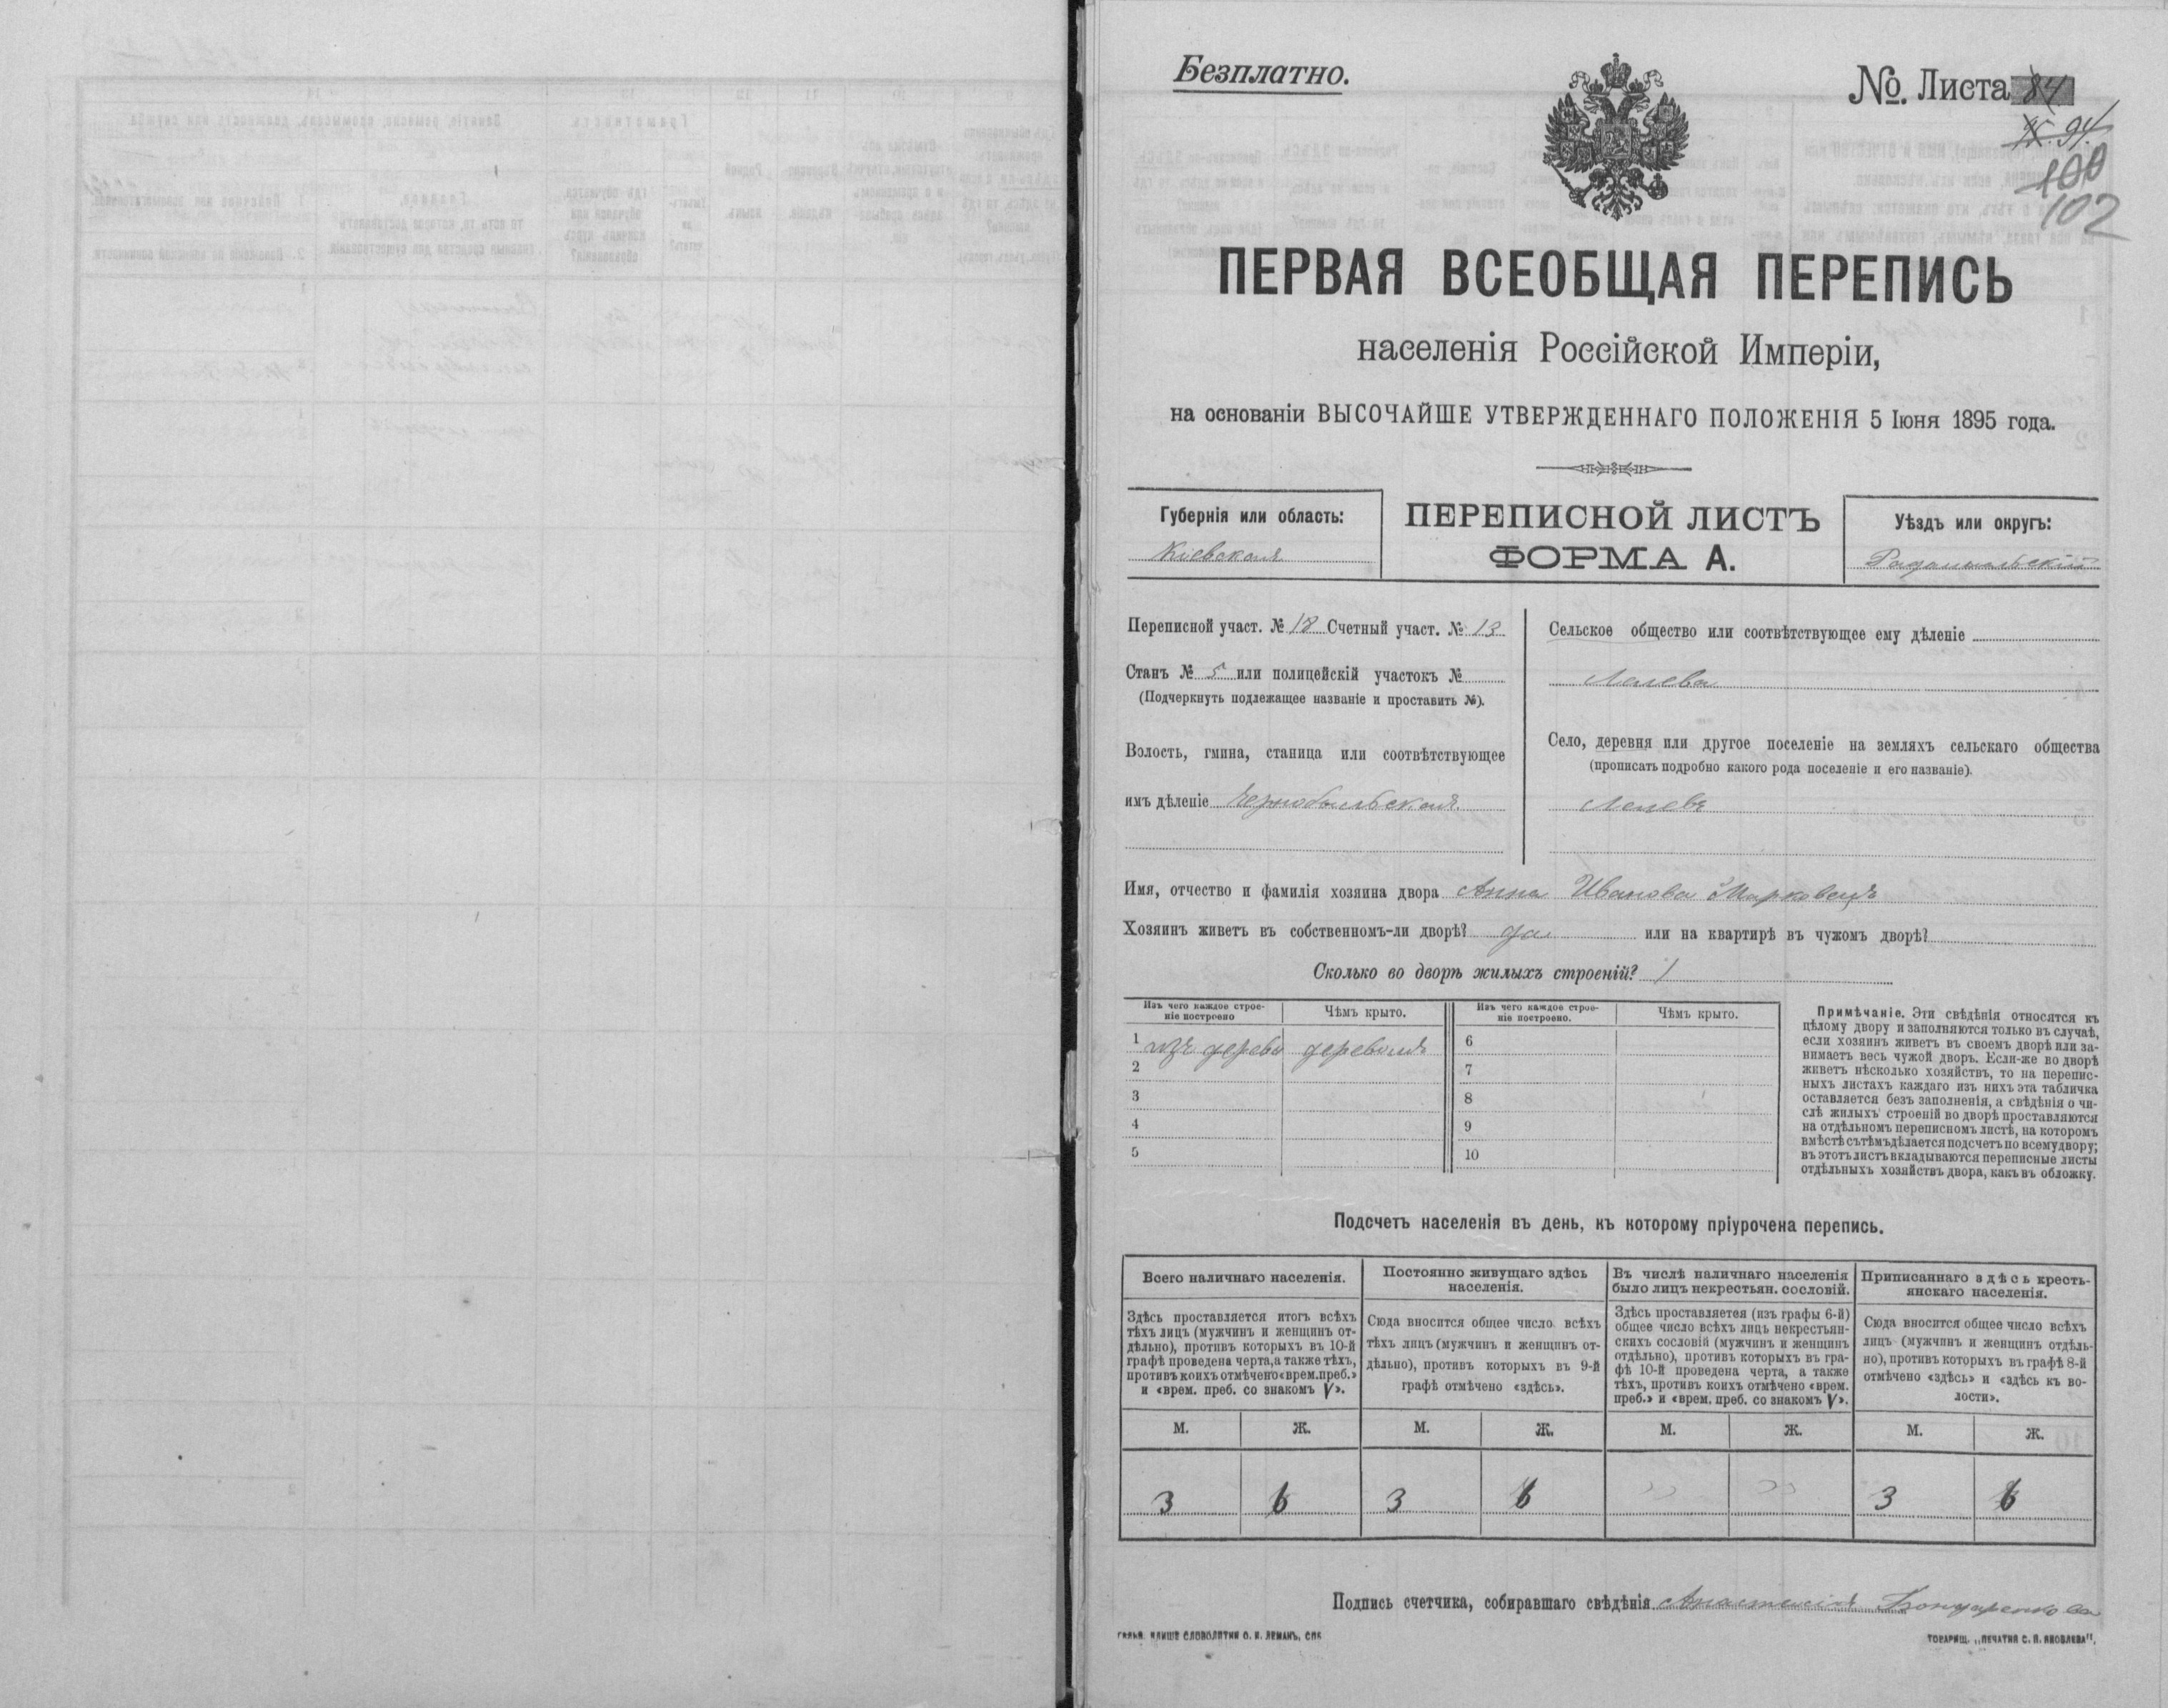 Безплатно.
№. Листа 84
94
100
102
ПЕРВАЯ ВСЕОБЩАЯ ПЕРЕПИСЬ
населенія Россійской Имперіи,
на основаніи ВЫСОЧАЙШЕ УТВЕРЖДЕННАГО ПОЛОЖЕНІЯ 5 Іюня 1895 года.
Губернія или область:
Кіевская
ПЕРЕПИСНОЙ ЛИСТЪ
ФОРМА А.
Уѣздъ или округъ:
Радомысльскій
Переписной участ. № 18 Счетный участ. № 13
Станъ № 5 или полицейскій участокъ №
(Подчеркнуть подлежащее названіе и проставить №).
Волость, гмина, станица или соотвѣтствующее
имъ дѣленіе Чернобыльская
Сельское общество или соотвѣтствующее ему дѣленіе
Лелевъ
Село, деревня или другое поселеніе на земляхъ сельскаго общества
(прописать подробно какого рода поселеніе и его названіе).
Лелевъ
Имя, отчество и фамилія хозяина двора Анна Иванова Марковецъ
Хозяинъ живетъ въ собственномъ-ли дворѣ? да или на квартирѣ въ чужомъ дворѣ?
Сколько во дворѣ жилыхъ строеній? 1
Изъ чего каждое строе-
ніе построено
Чѣмъ крыто.
Изъ чего каждое строе-
ніе построено.
Чѣмъ крыто.
1 изъ дерева деревомъ 6
2 7
3 8
4 9
5 10
Примѣчаніе. Эти свѣдѣнія относятся къ
цѣлому двору и заполняются только въ случаѣ,
если хозяинъ живетъ въ своемъ дворѣ или за-
нимаетъ весь чужой дворъ. Если-же во дворѣ
живетъ нѣсколько хозяйствъ, то на перепис-
ныхъ листахъ каждаго изъ нихъ эта табличка
оставляется безъ заполненія, а свѣдѣнія о чи-
слѣ жилыхъ строеній во дворѣ проставляются
на отдѣльномъ переписномъ листѣ, на которомъ
вмѣстѣ съ тѣмъ дѣлается подсчетъ по всему двору;
въ этотъ листъ вкладываются переписные листы
отдѣльныхъ хозяйствъ двора, какъ въ обложку.
Подсчетъ населенія въ день, къ которому пріурочена перепись.
Всего наличнаго населенія.
Здѣсь проставляется итогъ всѣхъ
тѣхъ лицъ (мужчинъ и женщинъ от-
дѣльно), противъ которыхъ въ 10-й
графѣ проведена черта, а также тѣхъ,
противъ коихъ отмѣчено «врем. преб.»
и «врем. преб. со знакомъ V».
Постоянно живущаго здѣсь
населенія.
Сюда вносится общее число всѣхъ
тѣхъ лицъ (мужчинъ и женщинъ от-
дѣльно), противъ которыхъ въ 9-й
графѣ отмѣчено «здѣсь».
Въ числѣ наличнаго населенія
было лицъ некрестьян. сословій.
Здѣсь проставляется (изъ графы 6-й)
общее число всѣхъ лицъ некрестьян-
скихъ сословій (мужчинъ и женщинъ
отдѣльно), противъ которыхъ въ гра-
фѣ 10-й проведена черта, а также
тѣхъ, противъ коихъ отмѣчено «врем.
преб.» и «врем. преб. со знакомъ V».
Приписаннаго здѣсь кресть-
янскаго населенія.
Сюда вносится общее число всѣхъ
лицъ (мужчинъ и женщинъ отдѣль-
но), противъ которыхъ въ графѣ 8-й
отмѣчено «здѣсь» и «здѣсь къ во-
лости».
М. Ж. М. Ж. М. Ж. М. Ж.
3 6 3 6 " " 3 6
Подпись счетчика, собиравшаго свѣдѣнія Анастасія Бондаренкова
СЛОВОЛИТНИ О. И. ЛЕМАНЪ, СПБ
ТОВАРИЩ. „ПЕЧАТНЯ С. П. ЯКОВЛЕВА".